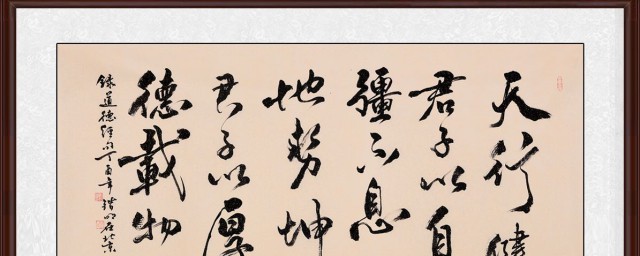 天行健
君子以自
彊不息
地勢坤
君子以厚
德載物
錄道德經句丁酉年